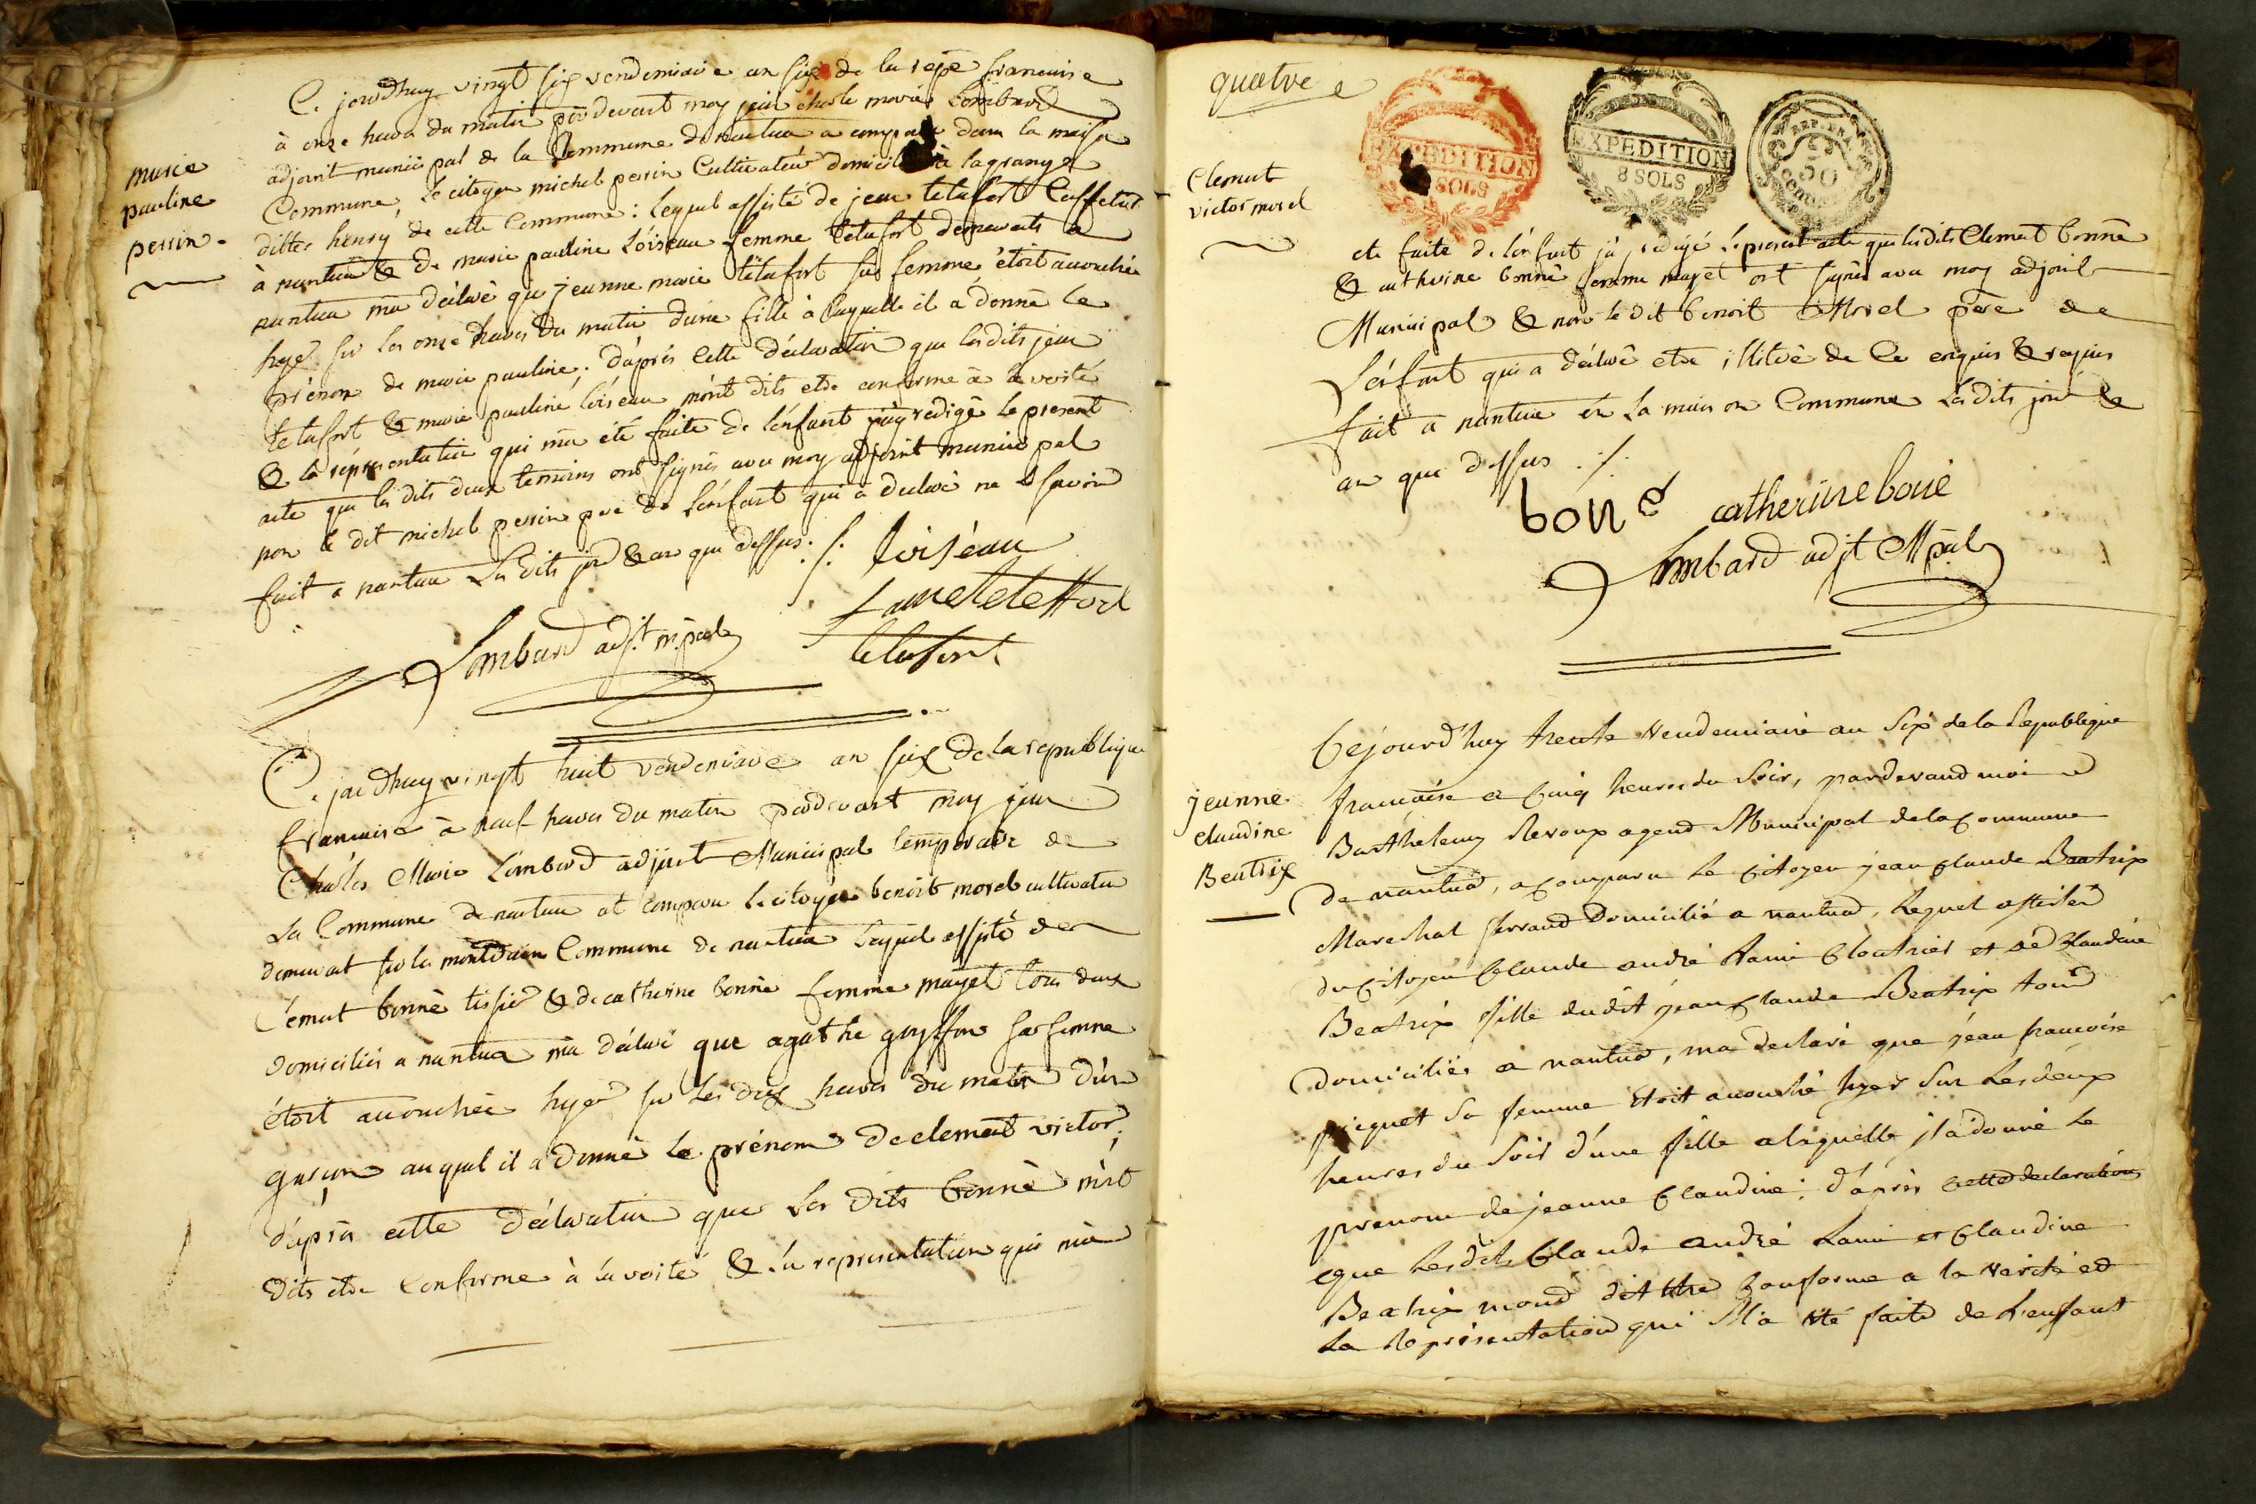 marie
pauline
perrin.
Ce jourdhuy vingt six vendemiaire an six de la repe francaise
à onze heures du matin pardevant moy jean charle marie Lombard
adjoint municipal de la Commune de nantua a comparu dans la maison
Commune, le citoyen michel perrin Cultivateur domicilié à lagrange
dittes henry de cette Commune: lequel assisté de jean tetafort Caffetier
à nantua & de marie pauline Loiseau femme tetafort demeurants a
nantua ma déclaré que jeanne marie tétafort sa femme étoit accouchée
hyer sur les onze heures du matin dune fille à laquelle il a donné le
prénom de marie pauline. d'après cette déclaration que lesdits jean
tetafort & marie pauline loiseau m'ont dits etre conforme à la verité
& la representation qui ma été faite de lénfant jay redigé le present
acte que les dits deux temoins ont signés avec moy adjoint municipal
non le dit michel perrin pere de lenfant qui a declaré ne le savoir
fait a nantua les dits jour & an que dessus ./. loiséau
Lombard adjt m.pal
tetafort
Ce jourdhuy vingt huit vendemiaire an six de la republique
francaise à neuf heures du matin pardevant moy jean
Charles Marie Lombard adjoint Municipal temporaire de
La Commune de nantua at comparu le citoyen benoit morel cultivateur
demeurant sur les Commune de nantua lequel assisté de
Clemat bonnè tissier & de catherine bonnè femme mayet tous deux
domiciliés a nantua ma déclaré que agathe guyffon sa femme
étoit accouchée hyer sur les dix heures du matin d'un
garçon auquel il a donné le prénom de clement victor;
d'après cette déclaration que les dits bonnè m'ont
dits etre conforme à la verité & la representation qui ma
quatre
EXPEDITION
8 SOLS
EXPEDITION
8 SOLS
REP. FRA.
50
Clemat
victor morel
ete faite de lénfant jà redigé le present acte que les dits Clemat bonnè
& catherine bonnè femme mayet ont signés avec moy adjoint
Municipal & non le dit benoit Morel père de
Lénfant qui a déclaré etre illitéré de ce enquis & requis
fait a nantua én la maison Commune Lesdits jour &
an que dessus ./.
boné catherine boné
Lombard adjt Mpal
jeanne
claudine
Beatrix
Cejourd'huy trente Vendemiaire an Six de la Republique
francaise a Cinq heures du Soir, pardevand moi
Barthelemy Revoux agend Municipal de la Commune
de nantua, a Comparu Le Citoyen jean Claude Beatrix
Mareshal ferrand Domicilié a nantua, Lequel assisté
du Citoyen Claude andré Ravi Cloutrier et de Claudine
Beatrix fille dudit jean Claude Beatrix tous
domiciliés a nantua, ma declaré que jéan francoise
picquet sa femme étoit accouché hyer sur Les deux
heures du Soir d'une fille a laquelle jl a donné le
prenom de jeanne Claudine; d'après cette declaration
que Lesdits Claude andré Ravi et Claudine
Beatrix mond dit être Conforme a la Verité et
La Représentation qui M'a été faite de L'enfant